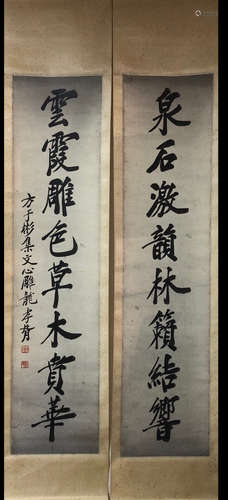 泉石激韻林籟結響
雲霞雕色草木賁華
方于彬集文心雕龍字